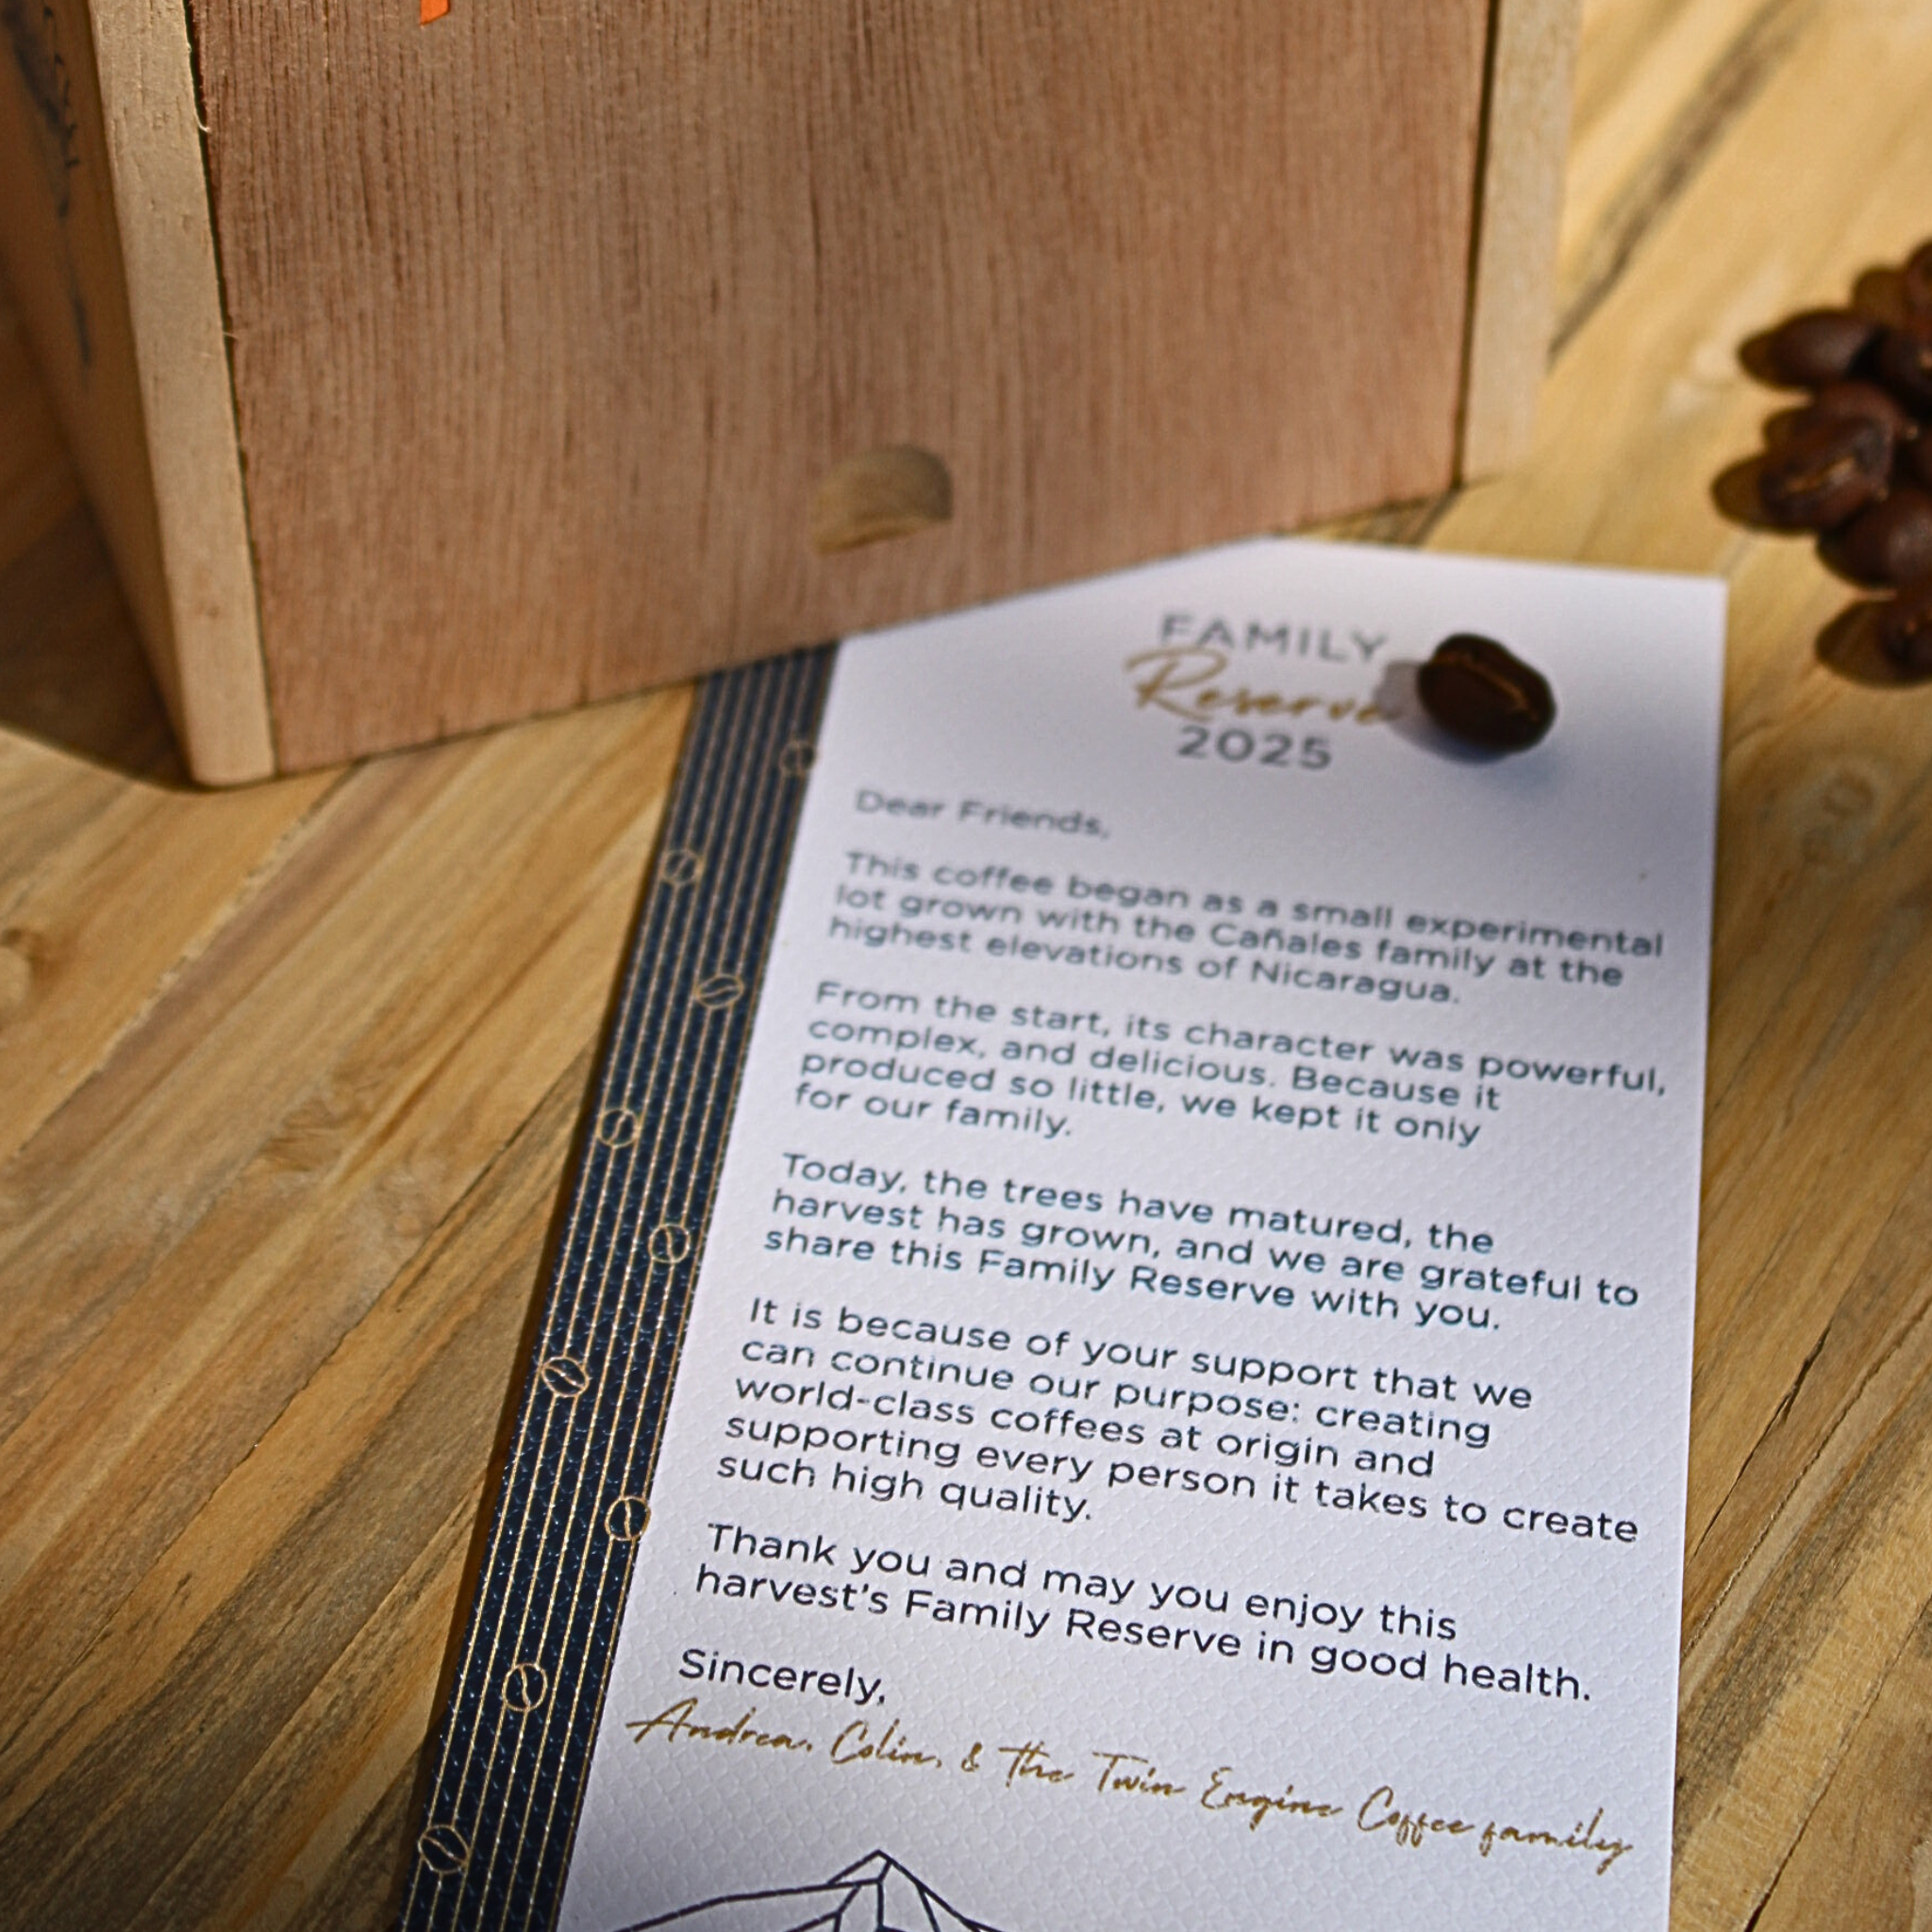 FAMILY
Reserve
2025
Dear Friends,
This coffee began as a small experimental
lot grown with the Cañales family at the
highest elevations of Nicaragua.
From the start, its character was powerful,
complex, and delicious. Because it
produced so little, we kept it only
for our family.
Today, the trees have matured, the
harvest has grown, and we are grateful to
share this Family Reserve with you.
It is because of your support that we
can continue our purpose: creating
world-class coffees at origin and
supporting every person it takes to create
such high quality.
Thank you and may you enjoy this
harvest's Family Reserve in good health.
Sincerely,
Andrea, Colin, & the Twin Engine Coffee family